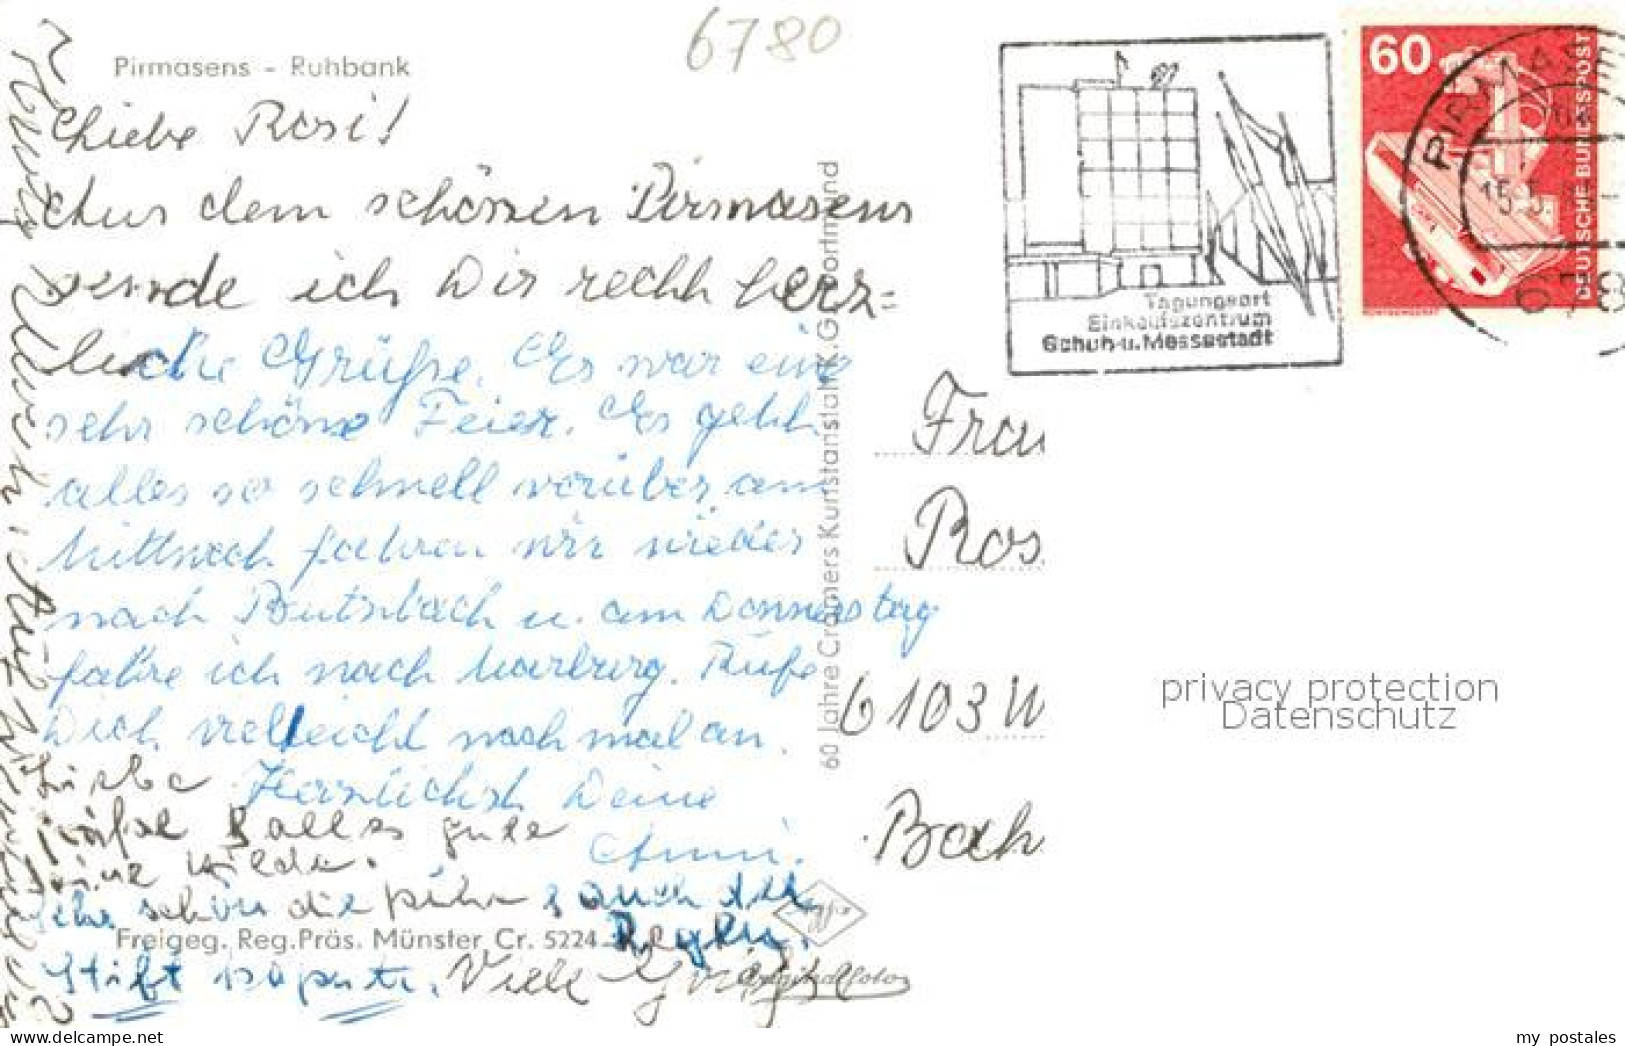 6780
Pirmasens - Ruhbank
Liebe Rosi!
Aus dem schönen Pirmasens
sende ich Dir recht herz=
liche Grüße. Es war eine
sehr schöne Feier. Es geht
alles so schnell vorüber, am
Mittwoch fahren wir wieder
nach Butzbach u. am Donnerstag
fahre ich nach Marburg. Rufe
Dich vielleicht noch mal an.
Herzlichst Deine
Anni.
Liebe
Grüße & alles gute
Deine Hilde.
schon die
& auch der
Regen.
Stift
Viele Grüße
Freigeg. Reg.Präs. Münster Cr. 5224
60 Jahre Cramers Kunstanstalt K.G. Dortmund
Agfa
Tagungsort
Einkaufszentrum
Schuh- u. Messestadt
60
DEUTSCHE BUNDESPOST
PIRMASENS
15.5.
678
Frau
Ros
6103 W
Bah
privacy protection
Datenschutz
delcampe.net
my_postales